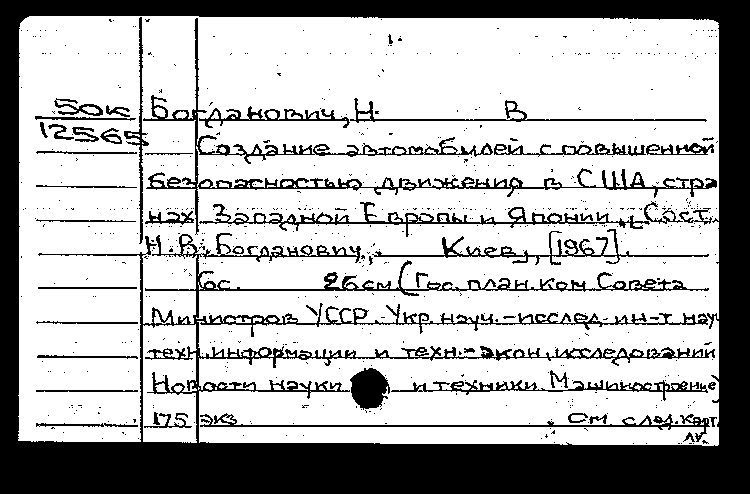 50К Богданович, Н В
12565
Создание автомобилей с повышенной
безопасностью движения в США, стра
нах Западной Европы и Японии. Сост.
Н.В. Богданович. Киев, [1967].
6с. 26см (Гос. план. ком Совета
Министров УССР. Укр. науч.-исслед. ин-т науч
техн. информации и техн.-экон. исследований
Новости науки и техники. Машиностроение)
175 экз См след. карт.